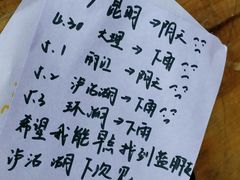 昆明→阴天
4.30 大理→下雨
5.1 丽江→阴天
5.2 泸沽湖→下雨
5.3 环湖→下雨
希望我能早点找到蓝朋友
泸沽湖下次见